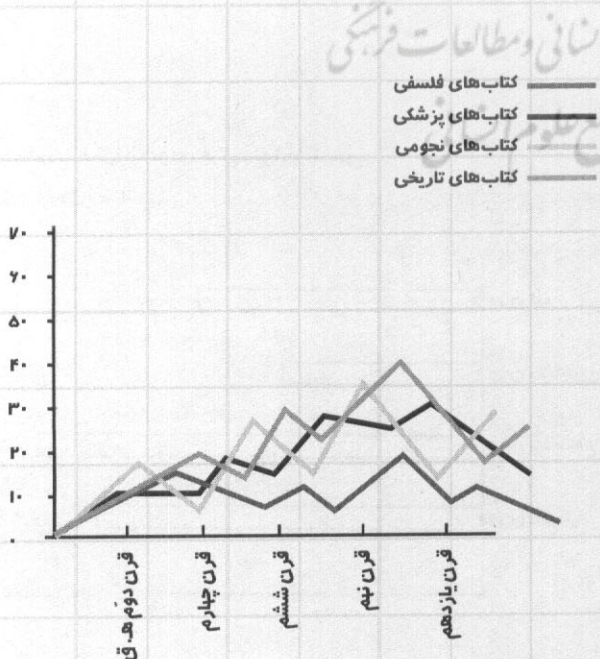 نسانی و مطالعات فرهنگی
ع علوم انسانی
کتاب‌های فلسفی
کتاب‌های پزشکی
کتاب‌های نجومی
کتاب‌های تاریخی
۷۰
۶۰
۵۰
۴۰
۳۰
۲۰
۱۰
۰
قرن دوم هـ. ق
قرن چهارم
قرن ششم
قرن نهم
قرن یازدهم